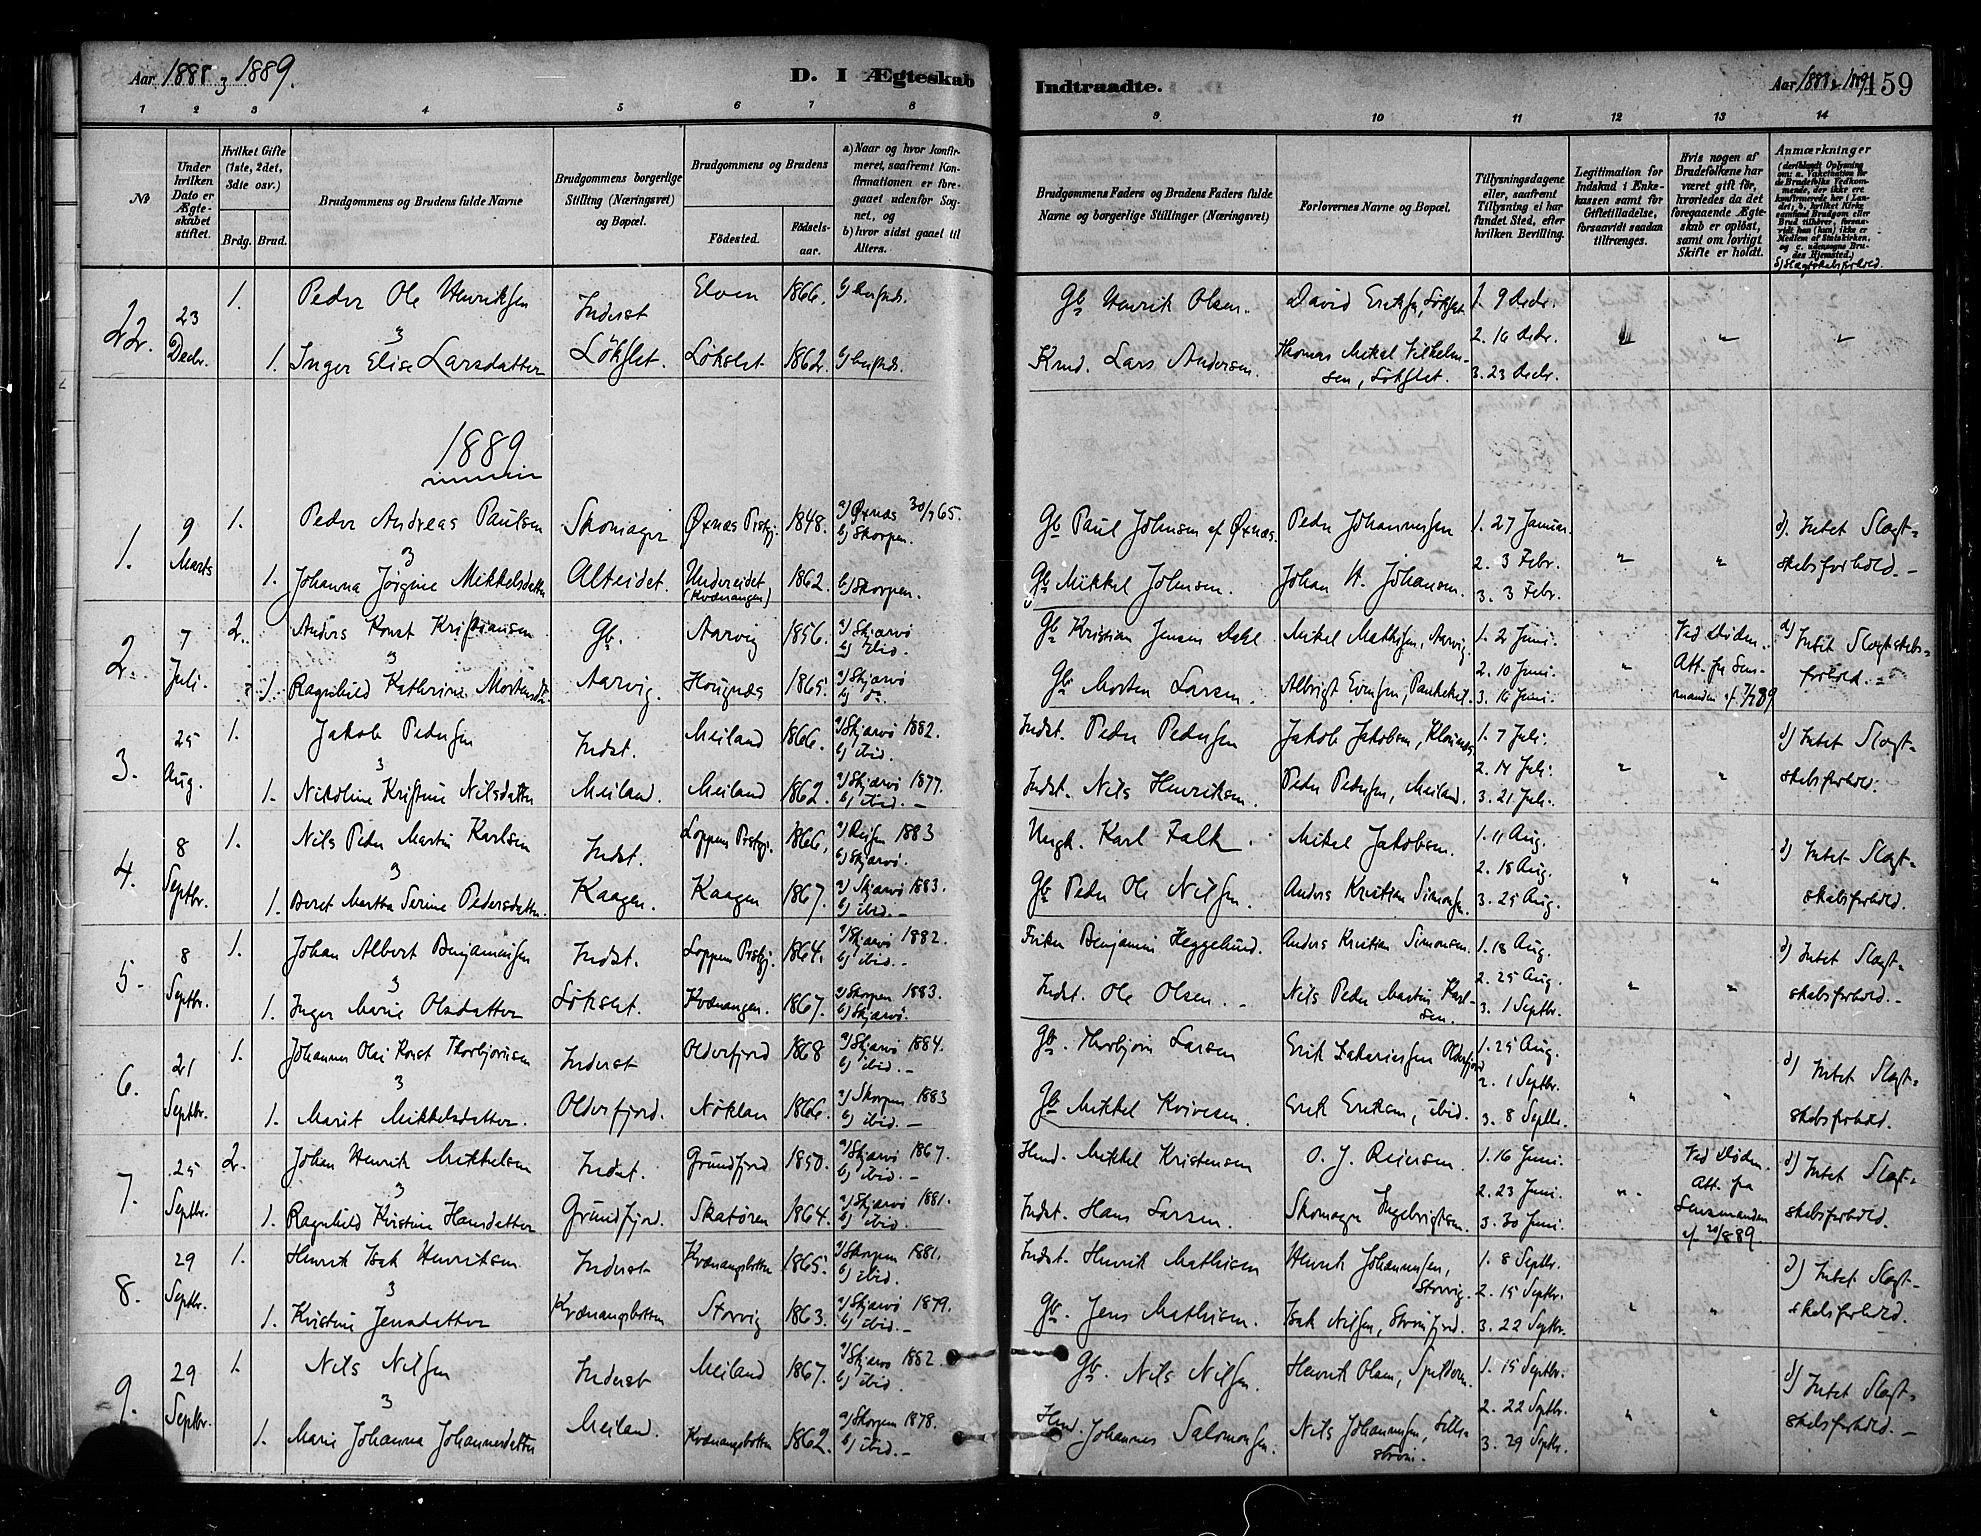 Aar 1888 og 1889.
D. I Ægteskab
Indtraadte.
Aar 1888 og 1889
159
1 2 3 4 5 6 7 8 9 10 11 12 13 14
No
Under hvilken Dato er Ægteskabet stiftet.
Hvilket Gifte (1ste, 2det, 3die osv.)
Brdg. Brud.
Brudgommens og Brudens fulde Navne
Brudgommens borgerlige Stilling (Næringsvei) og Bopæl.
Brudgommens og Brudens
Fødested.
Fødsels-aar.
a) Naar og hvor konfirmeret, saafremt Konfirmationen er foregaaet udenfor Sognet, og
b) hvor sidst gaaet til Alters.
Brudgommens Faders og Brudens Faders fulde Navne og borgerlige Stillinger (Næringsvei)
Forlovernes Navne og Bopæl.
Tillysningsdagene eller, saafremt Tillysning ei har fundet Sted, efter hvilken Bevilling.
Legitimation for Indskud i Enkekassen samt for Giftetilladelse, forsaavidt saadan tiltrænges.
Hvis nogen af Brudefolkene har været gift før, hvorledes da det foregaaende Ægteskab er opløst, samt om lovligt Skifte er holdt.
Anmærkninger
d) Slægtskabsforhold.
22. 23 Decbr. 1. Peder Ole Henriksen Inderst Elven 1866. Gb Henrik Olsen. David Eriksen, Løkslet 1. 9 Decbr.
2. 16 Decbr.
1. Inger Elise Larsdatter Løkslet. Løkslet 1862. Kmd. Lars Andersen. Thomas Mikal Vilhelmsen, Løkslet. 3. 23 Decbr.
1889
1. 9 Marts 1. Peder Andreas Paulsen Skomager Øxnæs Prstgj. 1848. a) Øxnæs 30/7 65. b) Skorpen. Gb Paul Johnsen af Øxnæs. Peder Johannessen 1. 27 Januar. d). Intet Slægt-
2. 3 Febr.
1. Johanna Jørgine Mikkelsdatter Alteidet. Undereidet (Kvænangen) 1862. b) Skorpen. Gb Mikkel Johnsen. Johan H. Johansen. 3. 3 Febr. skabsforhold.
2. 7 Juli. 2. Anders Konst Kristiansen Gb. Aarvig 1856. a) Skjærvø b) ibid. Gb Kristian Jensen Dahl Mikal Mathisen, Aarvig 1. 2 Juni. Ved Døden. d) Intet Slægtskabs-
2. 10 Juni.
1. Ragnhild Kathrine Mortensdtr. Aarvig. Hougnæs 1865. a) Skjærvø b) do. Gb Morten Larsen. Albrigt Evensen, 3. 16 Juni. Att. fra Lensmanden af 7/7 89 forhold.
3. 25 Aug. 1. Jakob Pedersen Indst. Meiland 1866. a) Skjærvø 1882. b) ibid. Indst. Peder Pedersen Jakob Jakobsen, 1. 7 Juli. d) Intet Slægt-
2. 14 Juli.
1. Nikoline Kristine Nilsdatter Meiland. Meiland 1862. a) Skjærvø 1877. b) ibid. Indst. Nils Henriksen. Peder Pedersen, Meiland. 3. 21 Juli. skabsforhold.
4. 8 Septbr. 1. Nils Peder Martin Karlsen Indst. Loppens Prstgj. 1866. a) Reisen 1883 b) Skjærvø. Ungk. Karl Falk. Mikal Jakobsen. 1. 11 Aug. d) Intet Slægt-
2. 18 Aug.
1. Beret Martha Serine Pedersdatter. Kaagen. Kaagen 1867. a) Skjærvø 1883. b) ibid. Gb Peder Ole Nilsen. Anders Kristian Simonsen. 3. 25 Aug. skabsforhold.
5. 8 Septbr. 1. Johan Albert Benjaminsen Indst. Loppens Prstgj. 1864. a) Skjærvø 1882. b) ibid. Fisker Benjamin Heggelund. Anders Kristian Simonsen. 1. 18 Aug. d) Intet Slægt-
2. 25 Aug.
1. Inger Marie Olsdatter Løkslet. Kvænangen. 1867. a) Skorpen 1883. b) Skjærvø. Indst. Ole Olsen. Nils Peder Martin Karlsen. 3. 1 Septbr. skabsforhold.
6. 21 Septbr. 1. Johannes Olai Konst Thorbjørnsen Inderst Olderfjord 1868 a) Skjærvø 1884. b) ibid. Gb. Thorbjørn Larsen Erik Zakariassen Olderfjord 1. 25 Aug. d) Intet Slægt-
2. 1 Septbr.
1. Marit Mikkelsdatter. Olderfjord. Nøklan 1866. a) Skorpen 1883 b) ibid. Gb Mikkel Kvivesen. Erik Eriksen, ibid. 3. 8 Septbr. skabsforhold.
7. 25 Septbr. 2. Johan Henrik Mikkelsen Indst. Grundfjord 1850. a) Skjærvø 1867. b) ibid. Hmd. Mikkel Kristensen O. J. Reiersen. 1. 16 Juni. Ved Døden. d) Intet Slægt-
2. 23 Juni.
1. Ragnhild Kirstine Hansdatter Grundfjord. Skatøren 1864. a) Skjærvø 1881. b) ibid. Indst. Hans Larsen. Skomager Ingebrigtsen. 3. 30 Juni. Att. fra Lensmanden af 20/8 89. skabsforhold.
8. 29 Septbr. 1. Henrik Isak Henriksen Inderst Kvænangsbotten 1865. a) Skorpen 1881. b) ibid. Indst. Henrik Mathisen Henrik Johannessen, Storvig. 1. 8 Septbr. d) Intet Slægt-
2. 15 Septbr.
1. Kristine Jensdatter Kvænangsbotten Storvig 1863. a) Skjærvø 1879. b) ibid. Gb. Jens Mathisen. Isak Nilsen, 3. 22 Septbr. skabsforhold.
9. 29 Septbr. 1. Nils Nilsen Inderst Meiland 1867. a) Skjærvø 1882. b) ibid. Gb. Nils Nilsen. Henrik Olsen, 1. 15 Septbr. d) Intet Slægt-
2. 22 Septbr.
1. Marie Johanna Johannesdatter Meiland. Kvænangsbotten 1862. a) Skorpen 1878. b) ibid. Hmd. Johannes Salomonsen. Nils Johannessen, 3. 29 Septbr. skabsforhold.